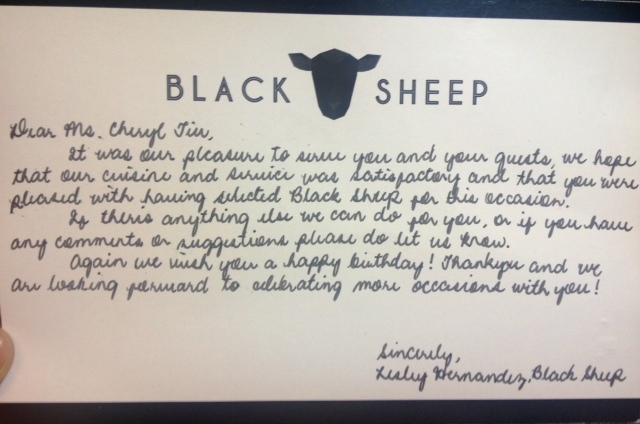 BLACK SHEEP
Dear Ms. Cheryl Tiu,
It was our pleasure to serve you and your guests, we hope
that our cuisine and service was satisfactory and that you were
pleased with having selected Black Sheep for this occasion.
If theris anything else we can do for you, or if you have
any comments or suggestions please do let us know.
Again we wish you a happy birthday! Thankyou and we
are looking forward to celebrating more occasions with you!
Sincerely,
Lesley Hernandez, Black Sheep